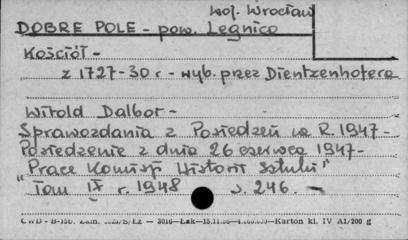 woj. Wrocław
DOBRE POLE - pow. Legnica
Kościół -
z 1727-30 r. - wyb. przez Dientzenhofera
Witold Dalbor -
Sprawozdania z Posiedzeń za R. 1947 -
Posiedzenie z dnia 26 czerwca 1947 -
"Prace Komisji Historii Sztuki"
Tom IX r. 1948 s. 246. -
Karton kl. IV A1/200 g